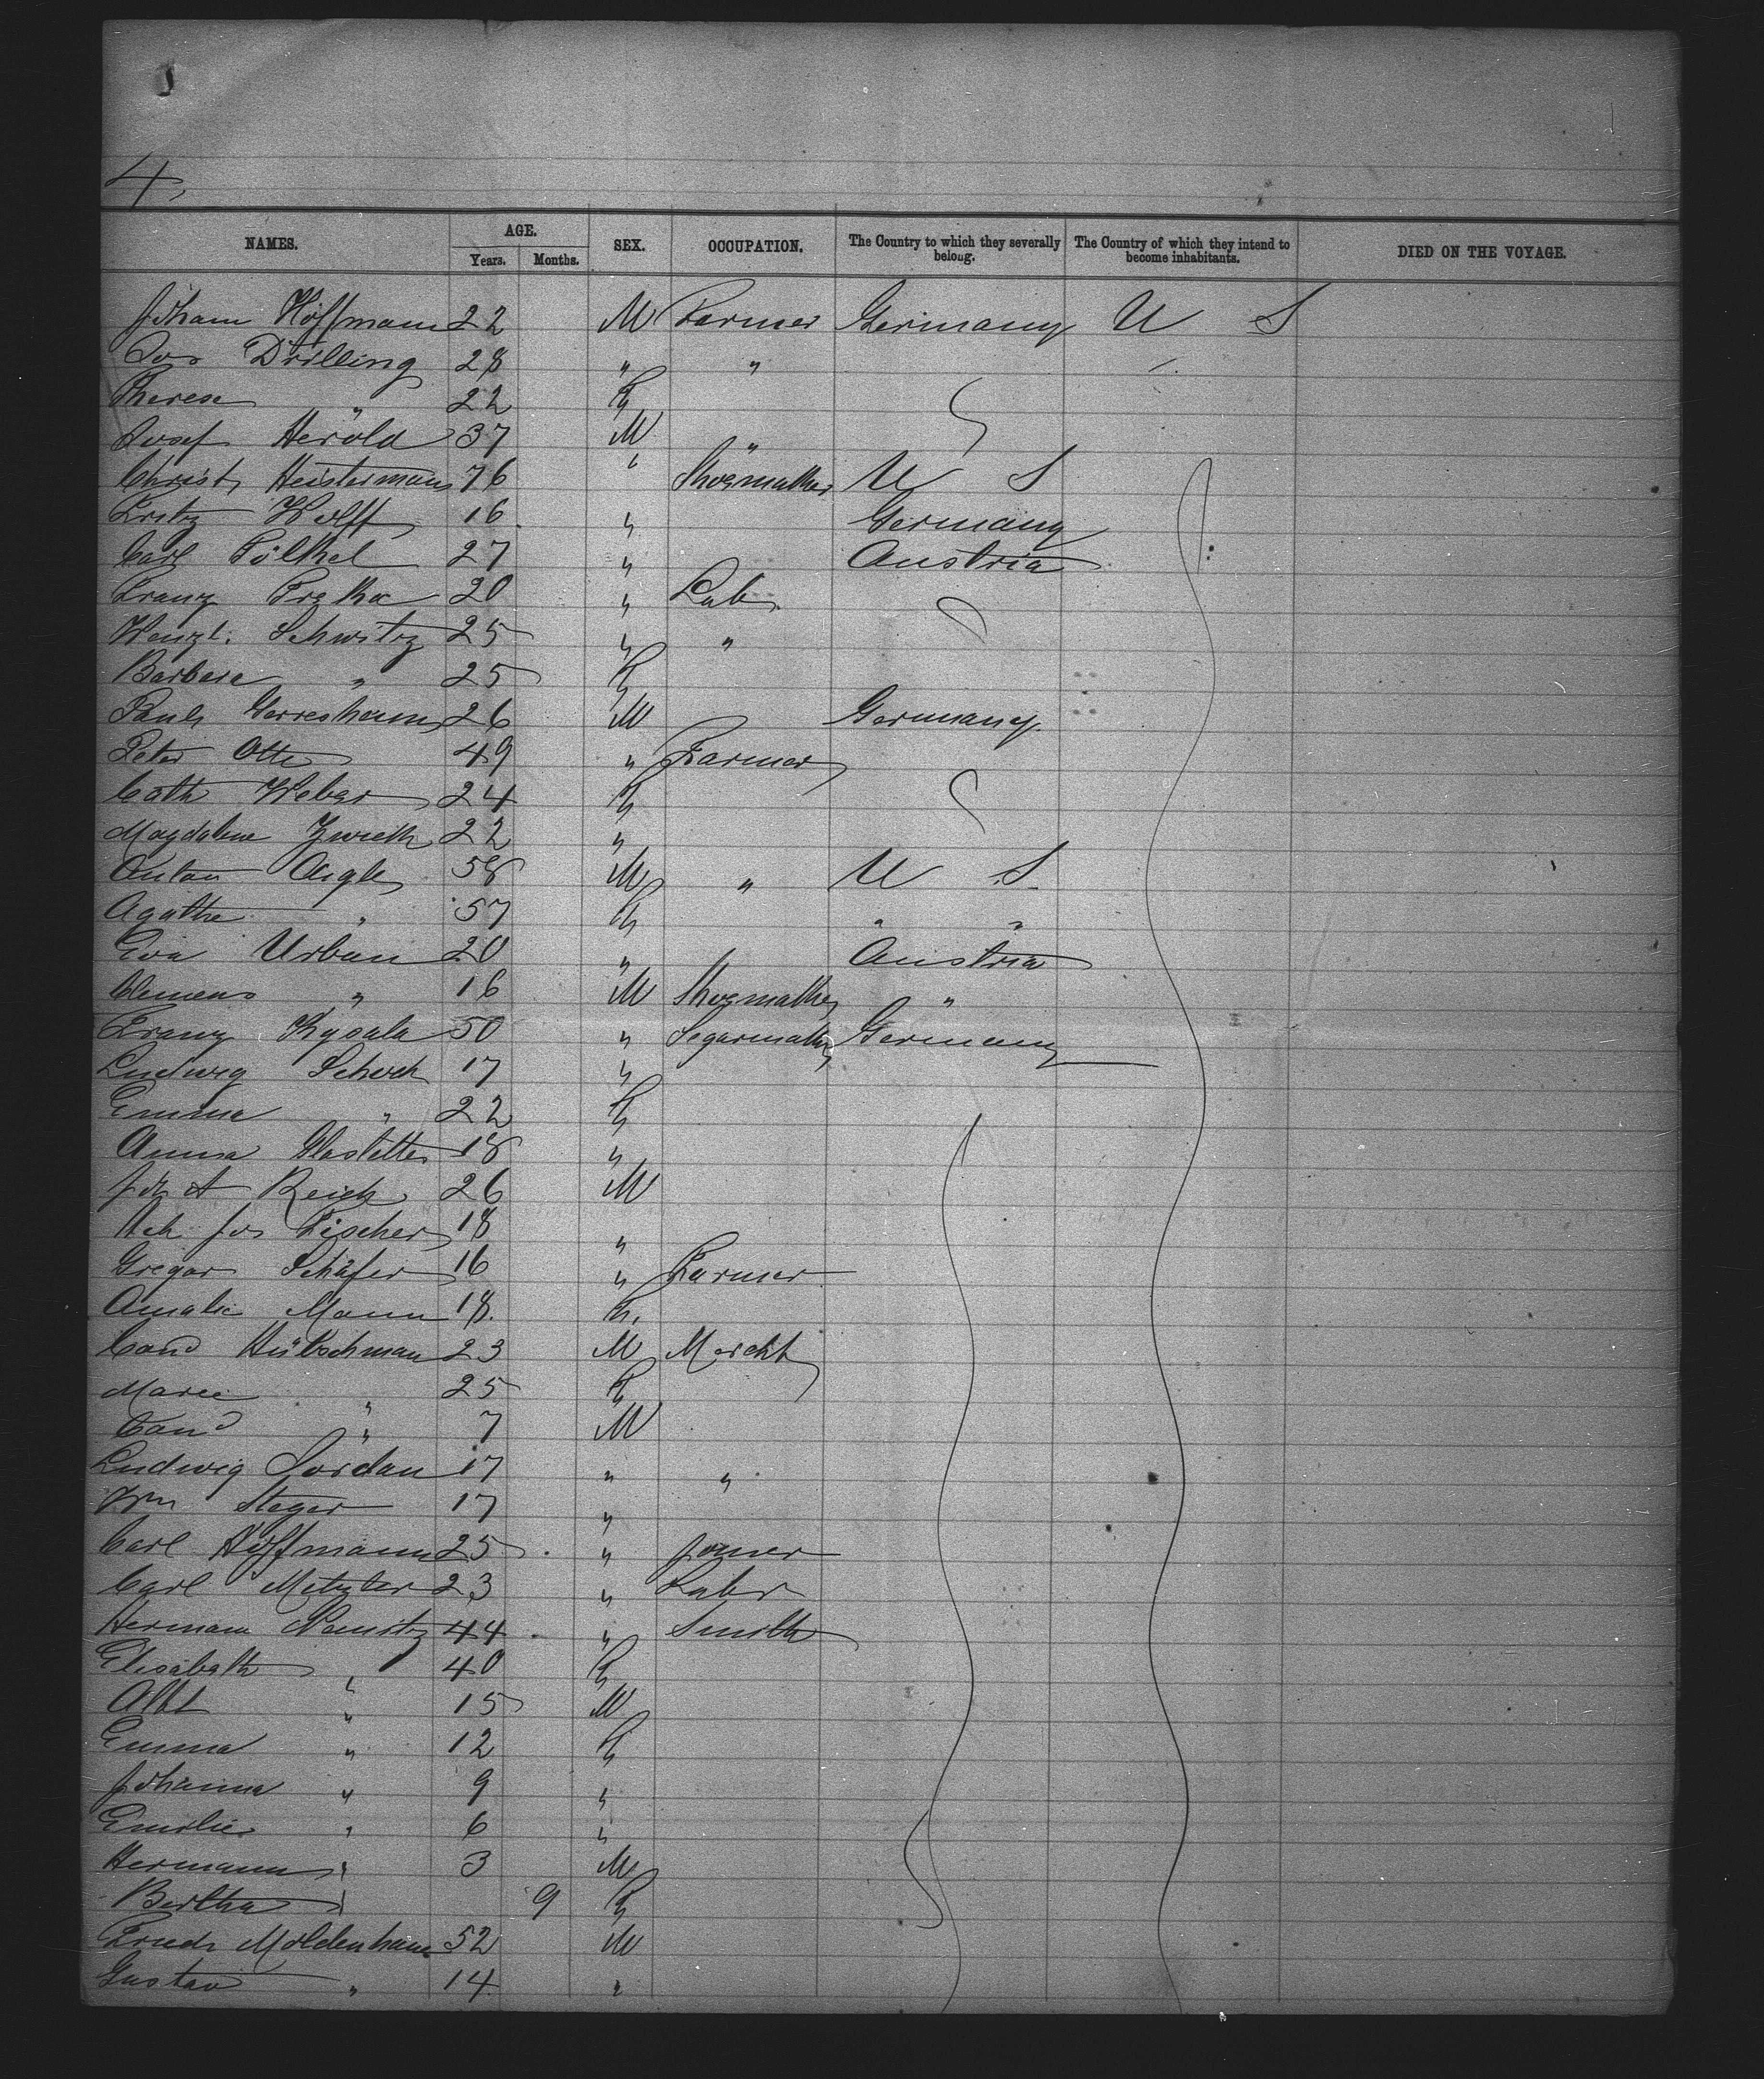 4,
NAMES. AGE. SEX. OCCUPATION. The Country to which they severally belong. The Country of which they intend to become inhabitants. DIED ON THE VOYAGE.
Years. Months.
Johann Hoffmann 22 M Farmer Germany U S
Jos Drilling 28 " "
Therese " 22 F
Josef Herold 37 M "
Christ. Heistermann 76 " Shoemaker U S
Fritz Wolff 16 " Germany
Carl Pölkel 27 " Austria
Franz 20 " Lab.
Wenzl. Schwitz 25 " "
Barbara " 25 F
Paul Gerresheim 26 M Germany
Peter Otto 49 " Farmer
Cath Weber 24 F
Magdalene 22 "
Anton Aigle 58 M " U S
Agathe " 57 F " "
Eva Urban 20 " Austria
Clemens " 16 M Shoemaker "
Franz Kysala 50 " Segarmaker Germany
Ludwig Schoch 17 "
Emma " 22 F
Anna 18 "
Joh A Reich 26 M
Jos Fischer 18 "
Gregor Schäfer 16 " Farmer
Amalie Mann 18. F.
Conrd Hübschman 23 M Mercht
Marie " 25 F
Conrd " 7 M
Ludwig Jordan 17 " "
Wm Steger 17 "
Carl Hoffmann 25 " Joiner
Carl Metzler 23 " Labr
Hermann 44 " Smith
Elisabeth " 40 F
Albt " 15 M
Emma " 12 F
Johanna " 9 "
Emilie " 6 "
Hermann " 3 M
Bertha " 9 F
Friedr Moldenhauer 52 M
Gustav " 14 "